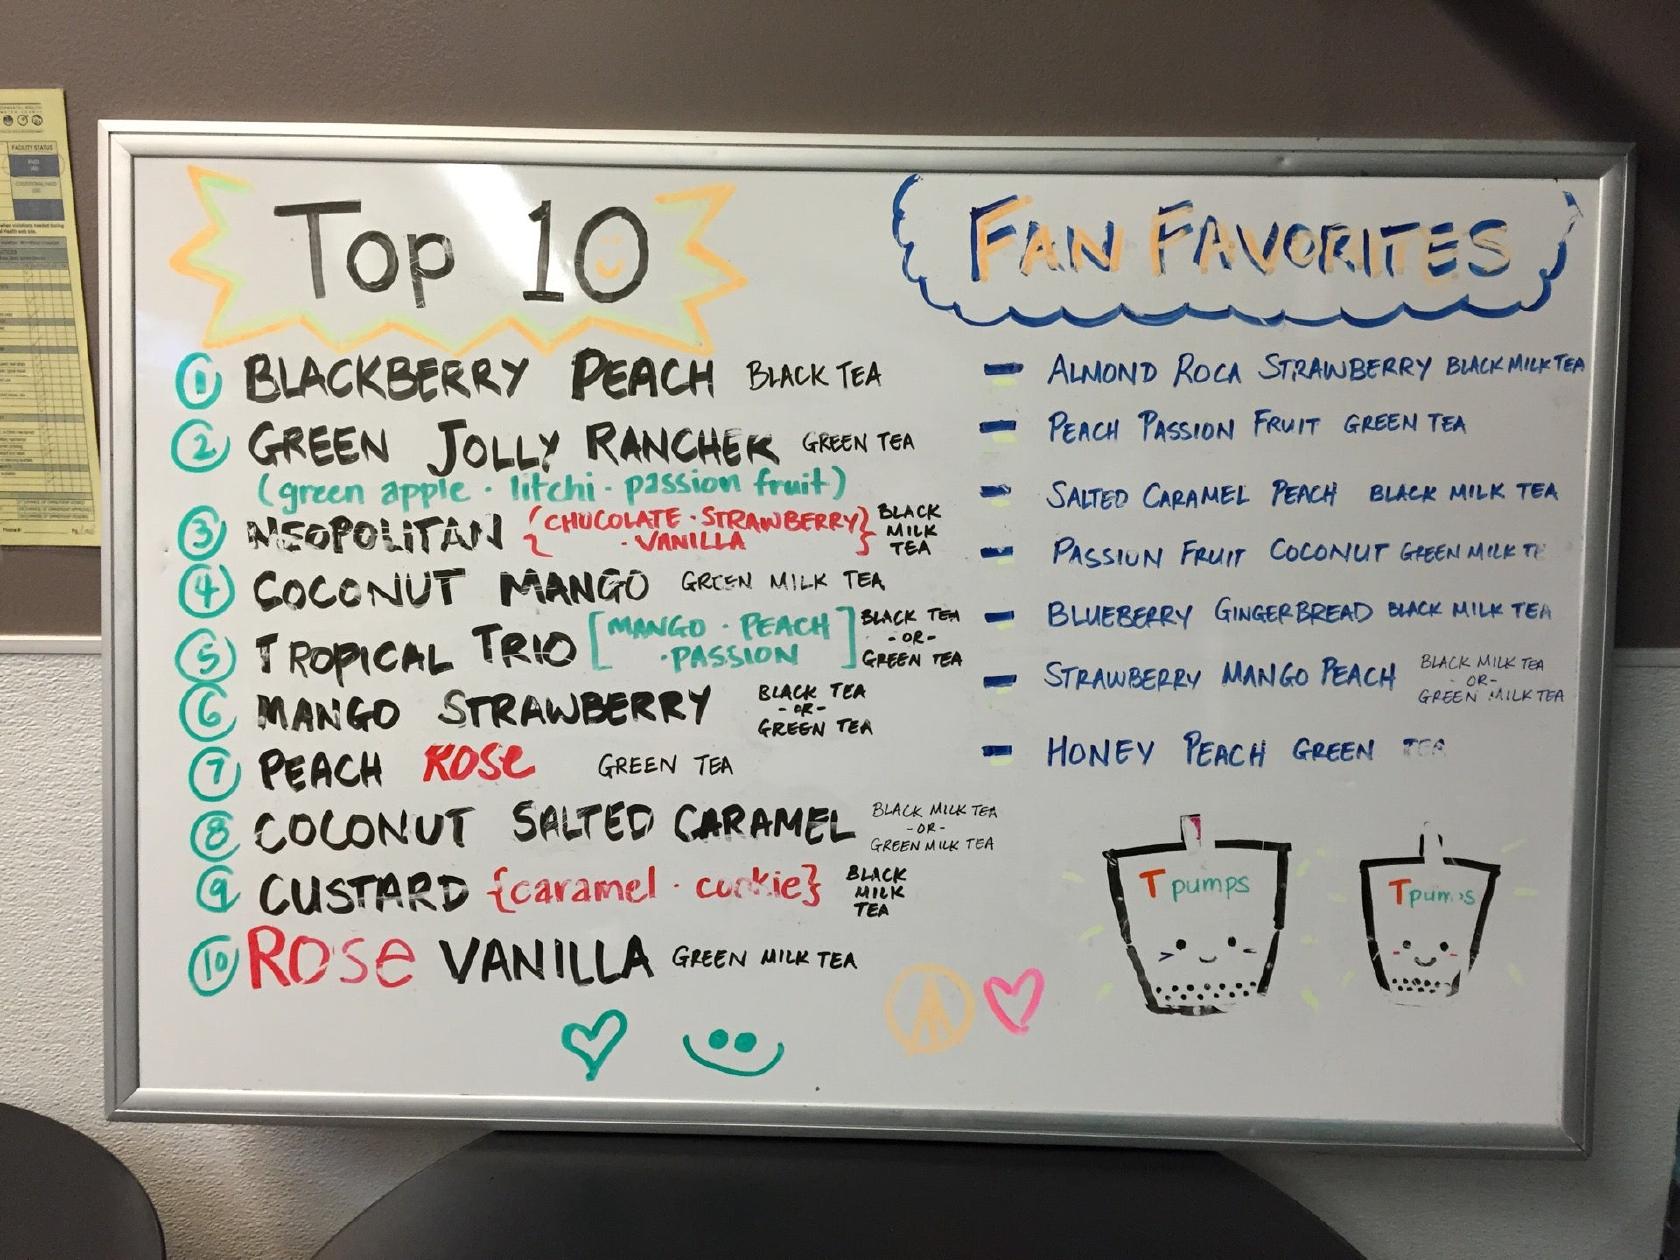 Top 10
① BLACKBERRY PEACH BLACK TEA
② GREEN JOLLY RANCHER GREEN TEA
(green apple · litchi · passion fruit)
③ NEOPOLITAN {CHOCOLATE · STRAWBERRY · VANILLA} BLACK MILK TEA
④ COCONUT MANGO GREEN MILK TEA
⑤ TROPICAL TRIO [MANGO · PEACH · PASSION] BLACK TEA -OR- GREEN TEA
⑥ MANGO STRAWBERRY BLACK TEA -OR- GREEN TEA
⑦ PEACH ROSE GREEN TEA
⑧ COCONUT SALTED CARAMEL BLACK MILK TEA -OR- GREEN MILK TEA
⑨ CUSTARD {caramel · cookie} BLACK MILK TEA
⑩ ROSE VANILLA GREEN MILK TEA
FAN FAVORITES
- ALMOND ROCA STRAWBERRY BLACK MILK TEA
- PEACH PASSION FRUIT GREEN TEA
- SALTED CARAMEL PEACH BLACK MILK TEA
- PASSION FRUIT COCONUT GREEN MILK TE
- BLUEBERRY GINGERBREAD BLACK MILK TEA
- STRAWBERRY MANGO PEACH BLACK MILK TEA -OR- GREEN MILK TEA
- HONEY PEACH GREEN TEA
Tpumps
Tpumps
FACILITY STATUS